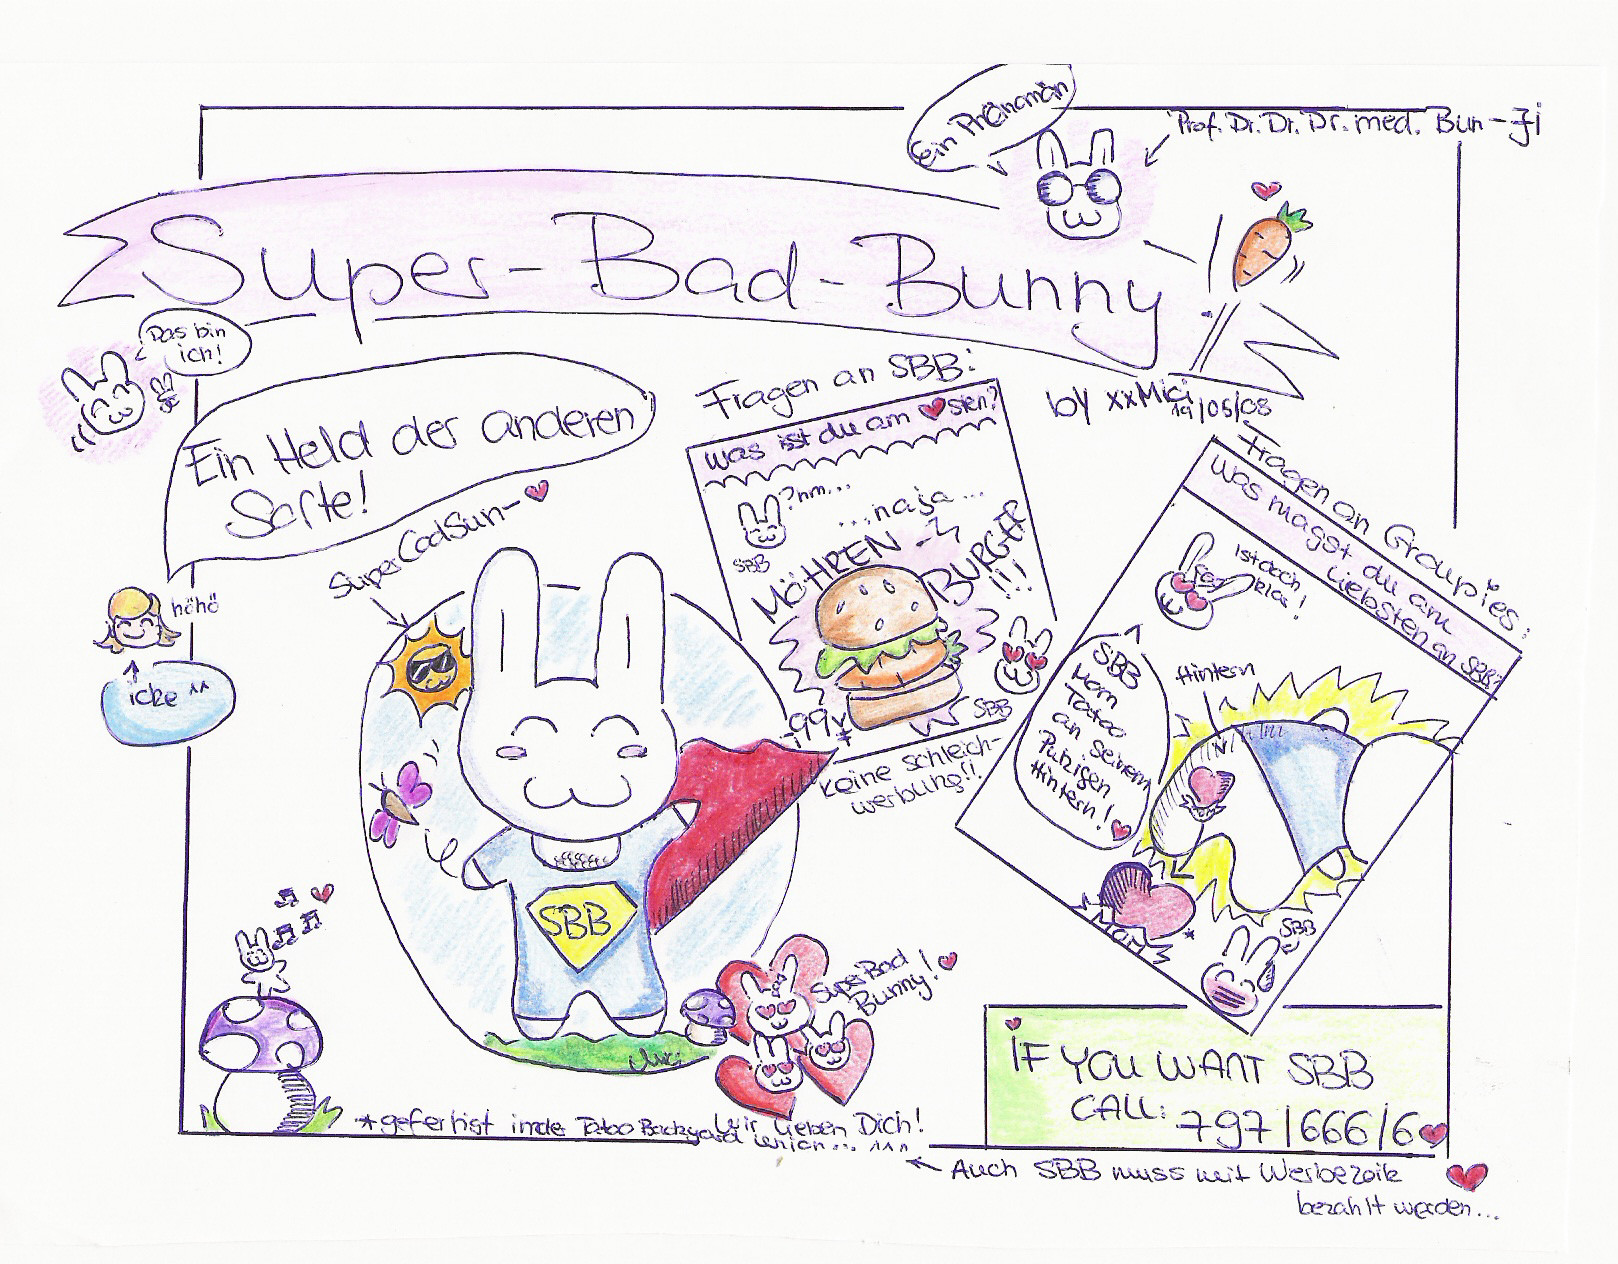 Ein Phänomän
Prof. Dr. Dr. Dr. med. Bun-Ji
Super-Bad-Bunny
Das bin
ich!
by xxMici
19/05/08
Ein Held der anderen
Sorte!
SuperCoolSun-
höhö
icke ^^
Fragen an SBB:
was isst du am ♥sten?
?hm...
...naja...
SBB
MÖHREN-
BURGER
!!!
SBB
,99¥
keine schleich-
werbung!!
Fragen an Groupies:
Was magst du am
liebsten an SBB?
Ist doch
klar!
SBB
vom
Tatoo
an seinem
Hintern!
Hintern
Mami
*
SBB
SBB
SuperBad
Bunny!
Mici
Wir lieben Dich!
*gefertigt in der Tatoo Backyard
^^^
IF YOU WANT SBB
CALL: 797/666/6
Auch SBB muss mit Werbezeile
bezahlt werden...